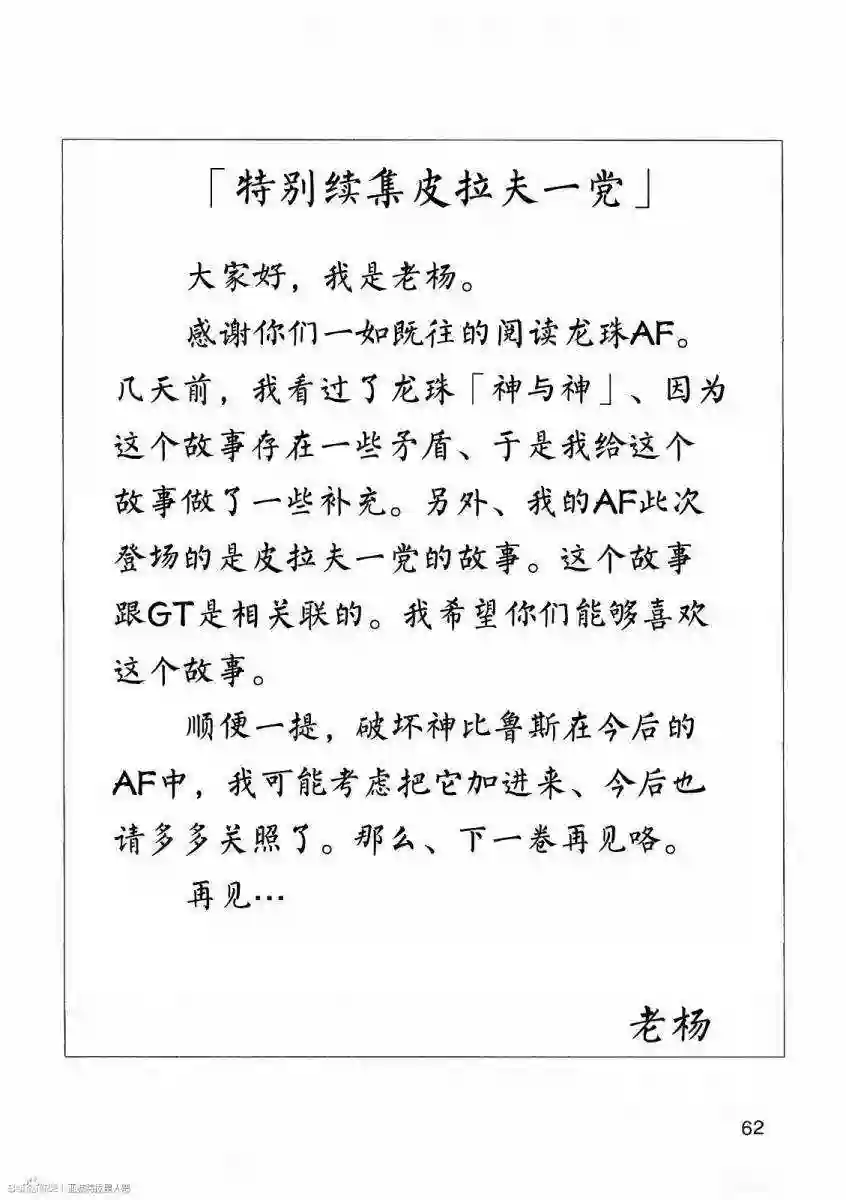 「特别续集皮拉夫一党」
大家好，我是老杨。
感谢你们一如既往的阅读龙珠AF。
几天前，我看过了龙珠「神与神」、因为
这个故事存在一些矛盾、于是我给这个
故事做了一些补充。另外、我的AF此次
登场的是皮拉夫一党的故事。这个故事
跟GT是相关联的。我希望你们能够喜欢
这个故事。
顺便一提，破坏神比鲁斯在今后的
AF中，我可能考虑把它加进来、今后也
请多多关照了。那么、下一卷再见咯。
再见…
老杨
62